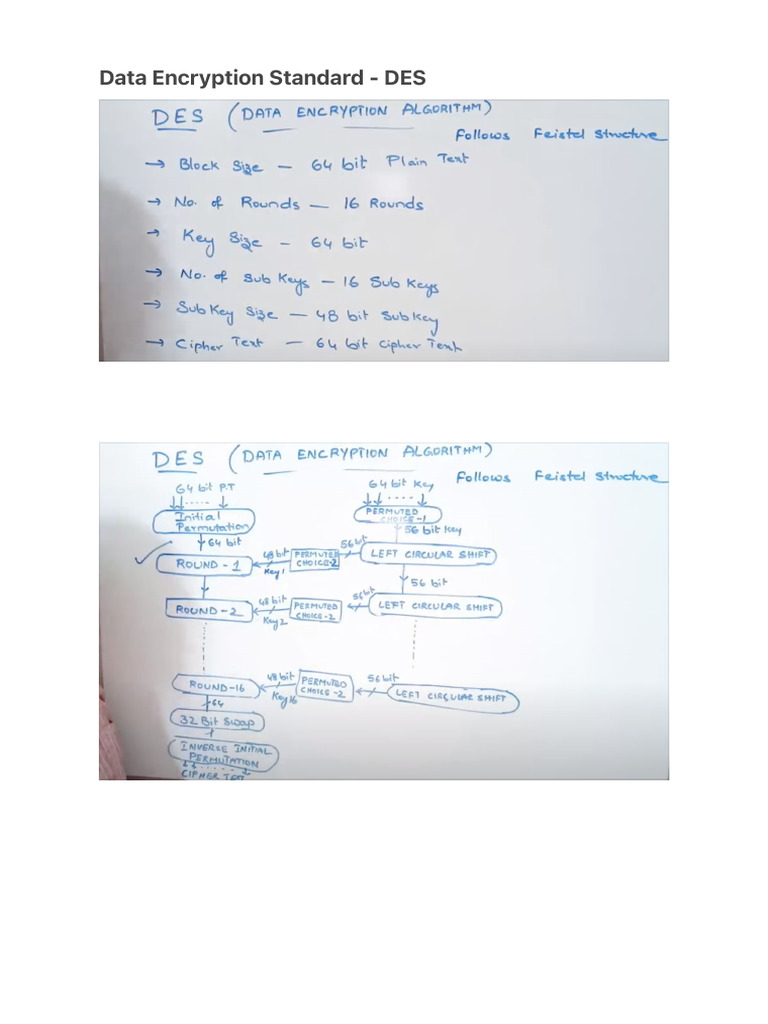 Data Encryption Standard - DES
DES (DATA ENCRYPTION ALGORITHM)
Follows Feistel Structure
→ Block Size — 64 bit Plain Text
→ No. of Rounds — 16 Rounds
→ Key Size - 64 bit
→ No. of Sub Keys — 16 Sub Keys
→ Sub Key Size — 48 bit Subkey
→ Cipher Text — 64 bit Cipher Text
DES (DATA ENCRYPTION ALGORITHM)
Follows Feistel Structure
64 bit P.T
64 bit Key
Initial
Permutation
PERMUTED
CHOICE-1
64 bit
56 bit Key
ROUND - 1
48 bit
Key1
PERMUTED
CHOICE-2
56 bit
LEFT CIRCULAR SHIFT
56 bit
ROUND-2
48 bit
Key2
PERMUTED
CHOICE-2
56 bit
LEFT CIRCULAR SHIFT
ROUND-16
48 bit
Key16
PERMUTED
CHOICE-2
56 bit
LEFT CIRCULAR SHIFT
64
32 Bit Swap
INVERSE INITIAL
PERMUTATION
CIPHER TEXT